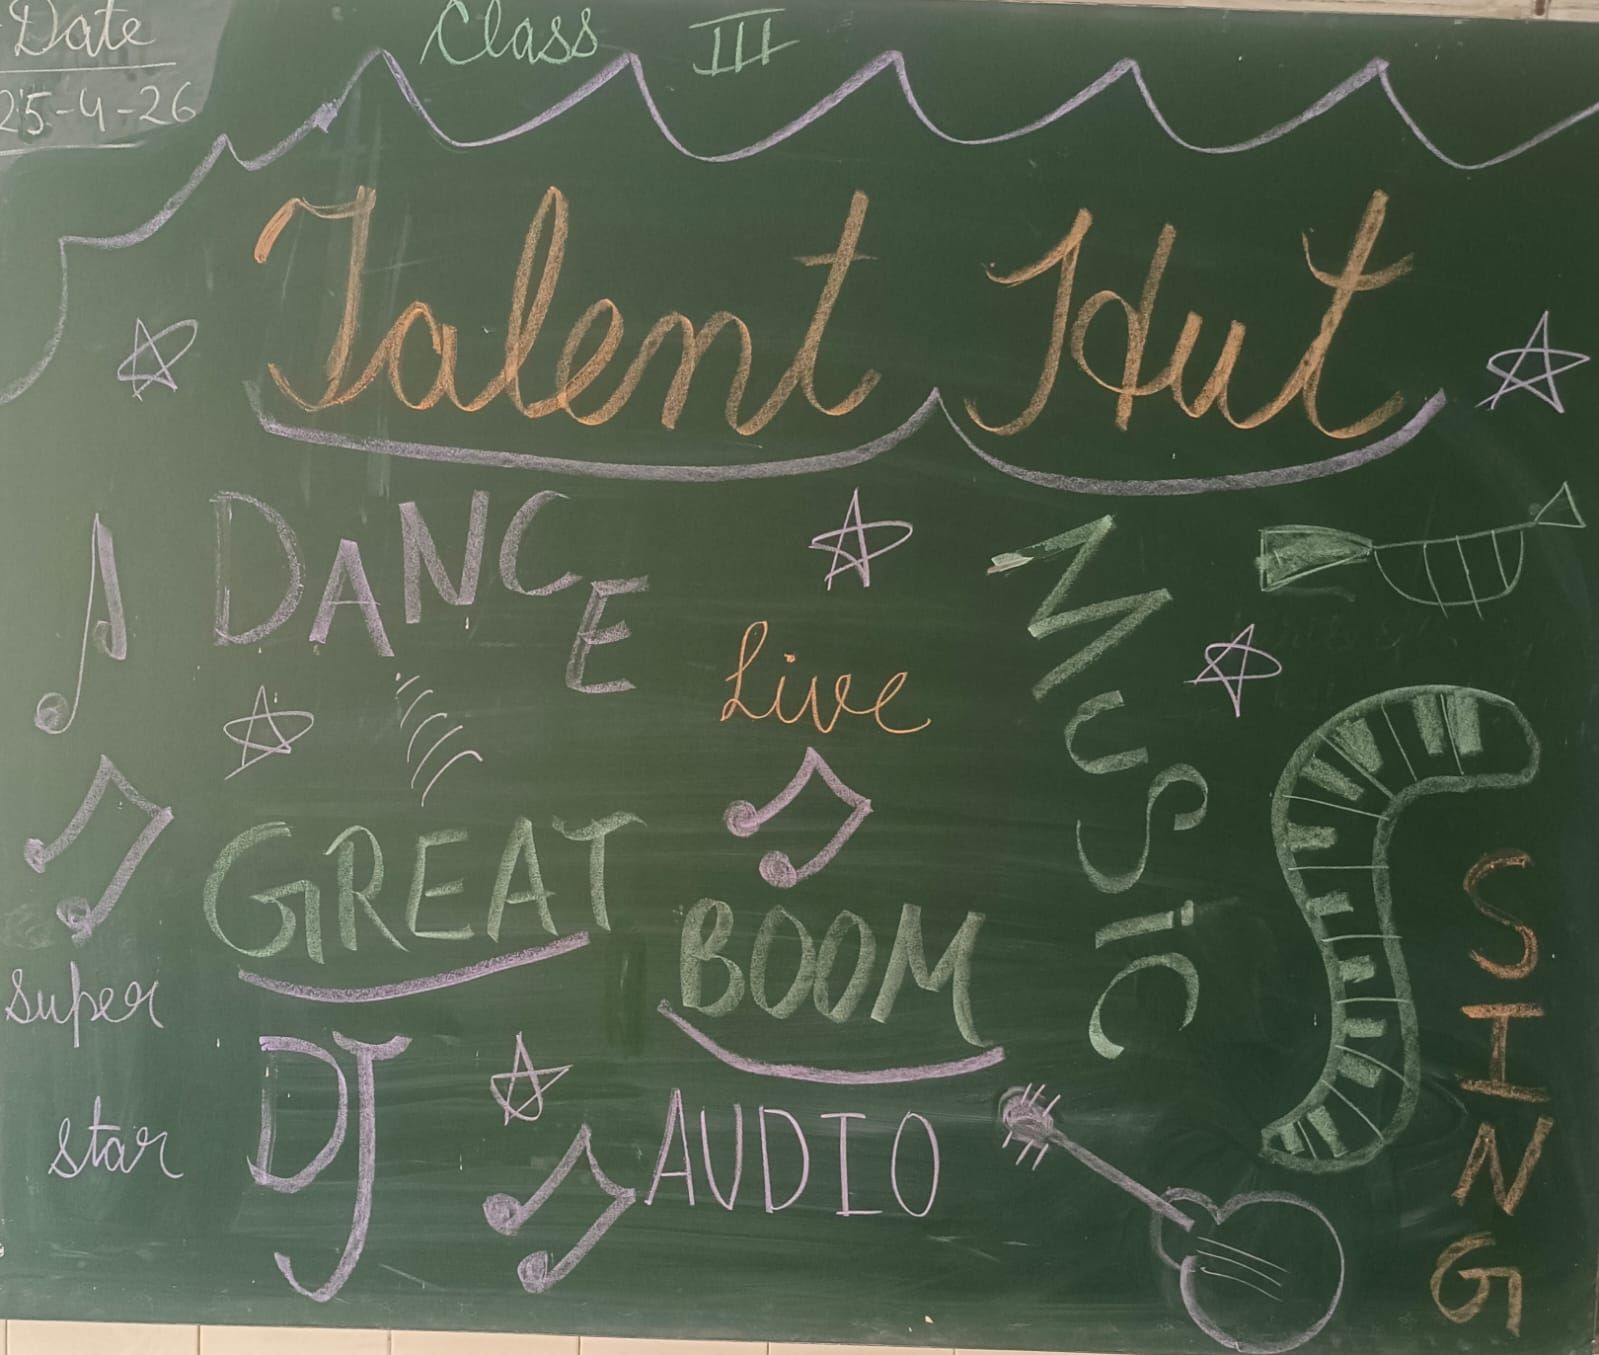 Date
25-4-26
Class III
Talent Hut
DANCE
Live
MUSiC
GREAT
BOOM
SING
super
star
DJ
AUDIO